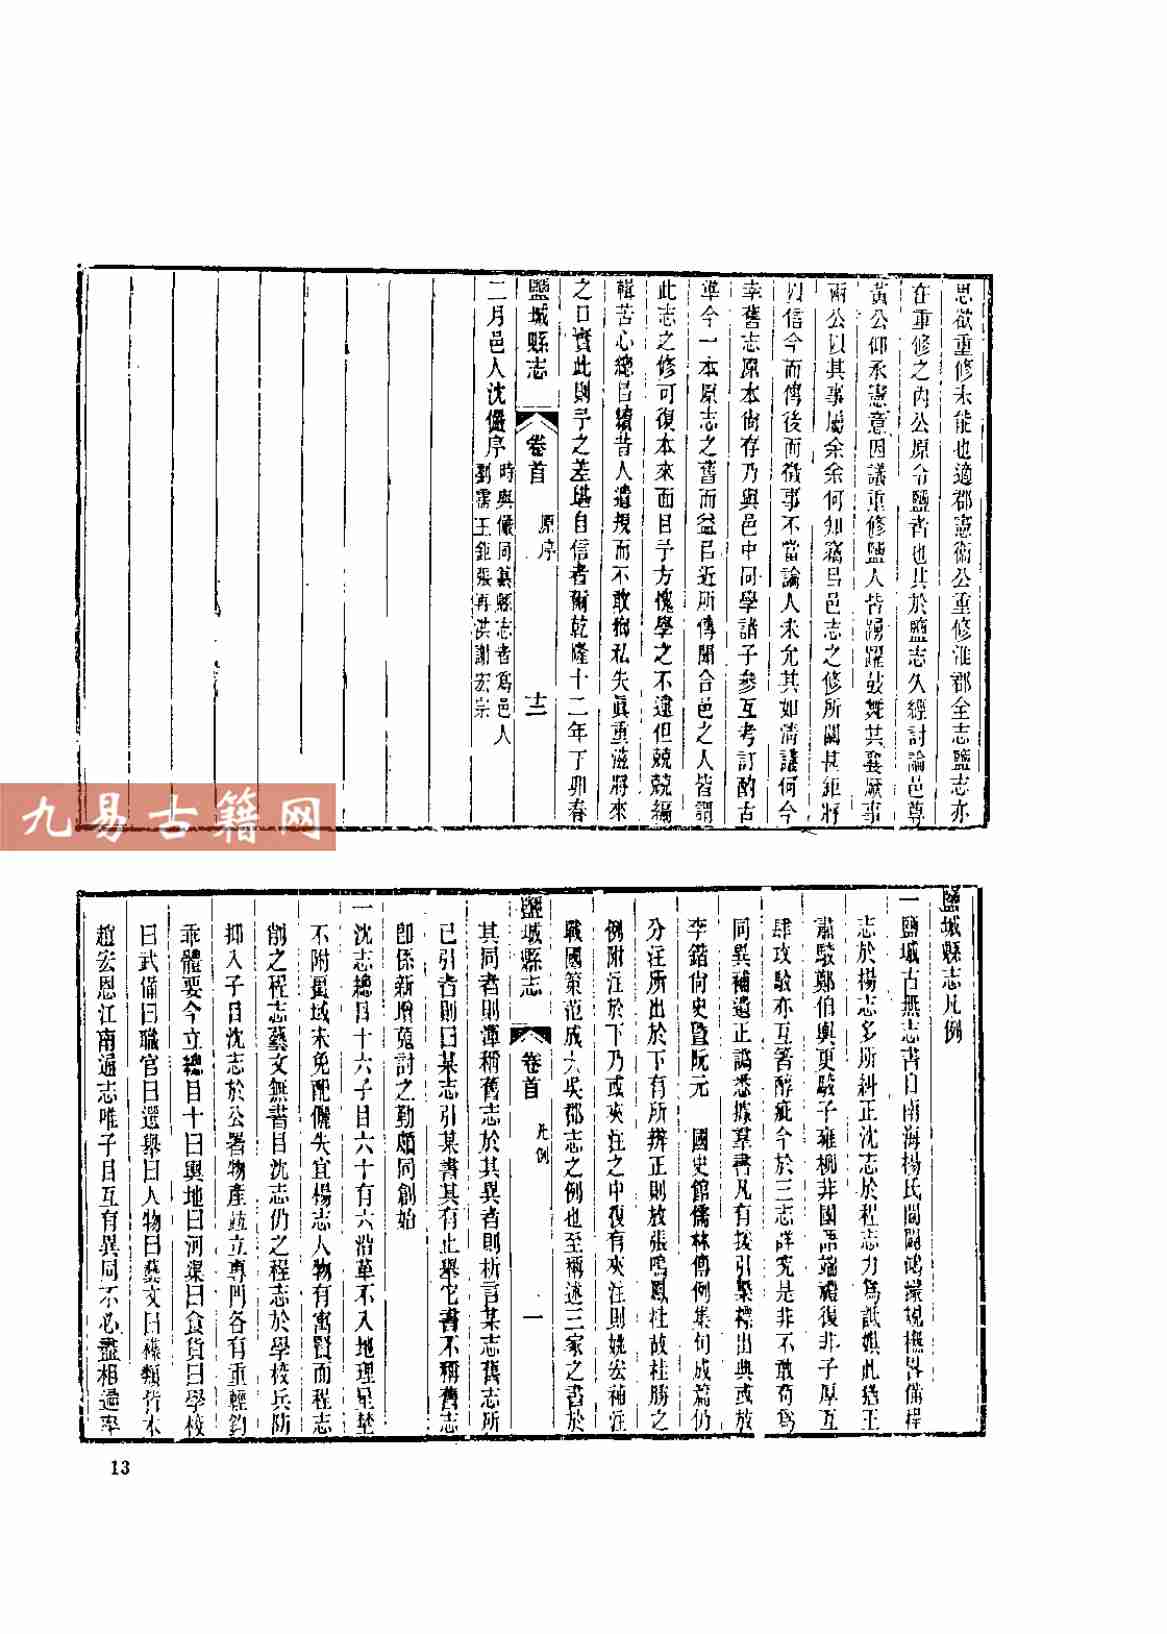 思欲重修未能也適郡憲衞公重修淮郡全志鹽志亦
在重修之內公原令鹽者也其於鹽志久經討論邑尊
黃公仰承憲意因議重修鹽人皆踴躍鼓舞共襄厥事
兩公以其事屬余余何知竊㠯邑志之修所關甚鉅將
㠯信今而傳後而徵事不當論人未允其如清議何今
幸舊志原本尙存乃與邑中同學諸子參互考訂酌古
準今一本原志之舊而益㠯近所傳聞合邑之人皆謂
此志之修可復本來面目予方愧學之不逮但兢兢編
輯苦心總㠯續昔人遺規而不敢徇私失眞重滋將來
之口實此則予之差堪自信者爾乾隆十二年丁卯春
鹽城縣志 卷首 原序 十二
二月邑人沈儼序
時與儼同纂縣志者爲邑人
劉霈王鉅張再洪謝宏宗
九易古籍网
鹽城縣志凡例
一鹽城古無志書自南海楊氏閶闢鴻濛規撫畧備程
志於楊志多所糾正沈志於程志力爲詆娸此猶王
肅駁鄭伯輿更駁子雍柳非國語端禮復非子厚互
肆攻駁亦互箸醇疵今於三志詳究是非不敢苟爲
同異補遺正譌悉據羣書凡有援引槩標出典或放
李鍇尙史暨阮元 國史館儒林傳例集句成篇仍
分注所出於下有所辨正則放張鳴鳳桂故桂勝之
例附注於下乃或夾注之中復有夾注則姚宏補注
戰國策范成大吳郡志之例也至稱述三家之書於
鹽城縣志 卷首 凡例 一
其同者則渾稱舊志於其異者則析言某志舊志所
已引者則曰某志引某書其有止舉它書不稱舊志
卽係新增蒐討之勤頗同創始
一沈志總目十六子目六十有六沿革不入地理星埜
不附畺域未免配儷失宜楊志人物有寓賢而程志
削之程志藝文無書目沈志仍之程志於學校兵防
抑入子目沈志於公署物產竝立專門各有重輕鈞
乖體要今立總目十曰輿地曰河渠曰食貨曰學校
曰武備曰職官曰選舉曰人物曰藝文曰襍類皆本
趙宏恩江南通志唯子目互有異同不必盡相過率
13